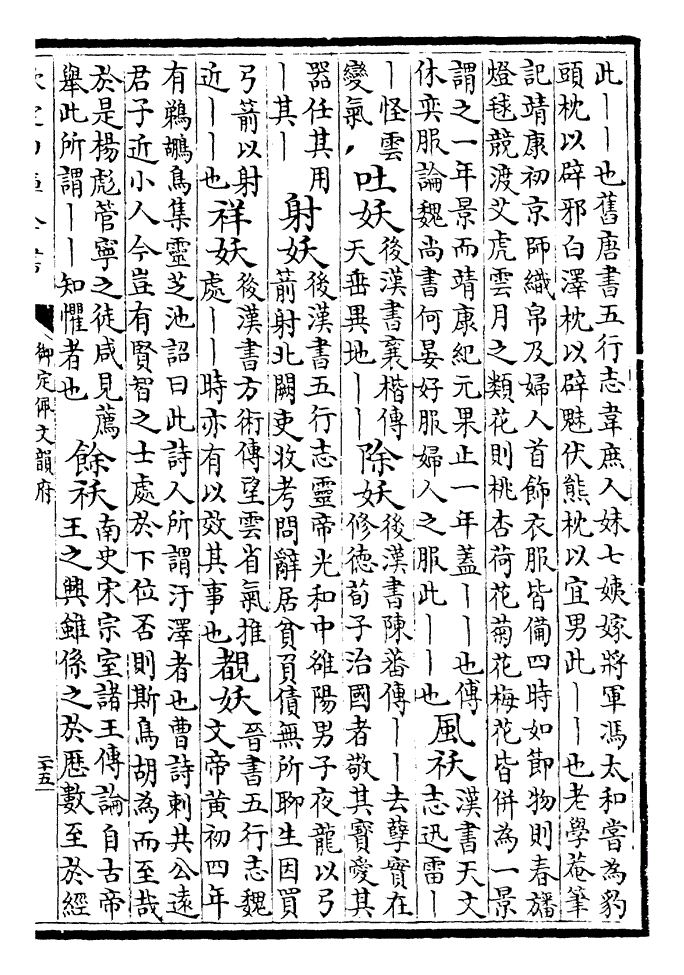 此丨丨也舊唐書五行志韋庶人妹七姨嫁將軍馮太和嘗為豹
頭枕以辟邪白澤枕以辟魅伏熊枕以宜男此丨丨也老學菴筆
記靖康初京師織帛及婦人首飾衣服皆備四時如節物則春旛
燈毬競渡艾虎雲月之類花則桃杏荷花菊花梅花皆併為一景
謂之一年景而靖康紀元果止一年蓋丨丨也傅
休奕服論魏尚書何晏好服婦人之服此丨丨也
風祅
漢書天文
志迅雷丨
丨怪雲
變氣
吐妖
後漢書襄楷傳
天垂異地丨丨
除妖
後漢書陳蕃傳丨丨去孽實在
修德荀子治國者敬其寶愛其
器任其用
丨其丨
射妖
後漢書五行志靈帝光和中雒陽男子夜龍以弓
箭射北闕吏收考問辭居貧負債無所聊生因買
弓箭以射
近丨丨也
祥妖
後漢書方術傳望雲省氣推
處丨丨時亦有以效其事也
覩妖
晉書五行志魏
文帝黃初四年
有鵜鶘鳥集靈芝池詔曰此詩人所謂汙澤者也曹詩刺共公遠
君子近小人今豈有賢智之士處於下位否則斯鳥胡為而至哉
於是楊彪管寧之徒咸見薦
舉此所謂丨丨知懼者也
餘祅
南史宋宗室諸王傳論自古帝
王之興雖係之於厯數至於經
御定佩文韻府
二十五